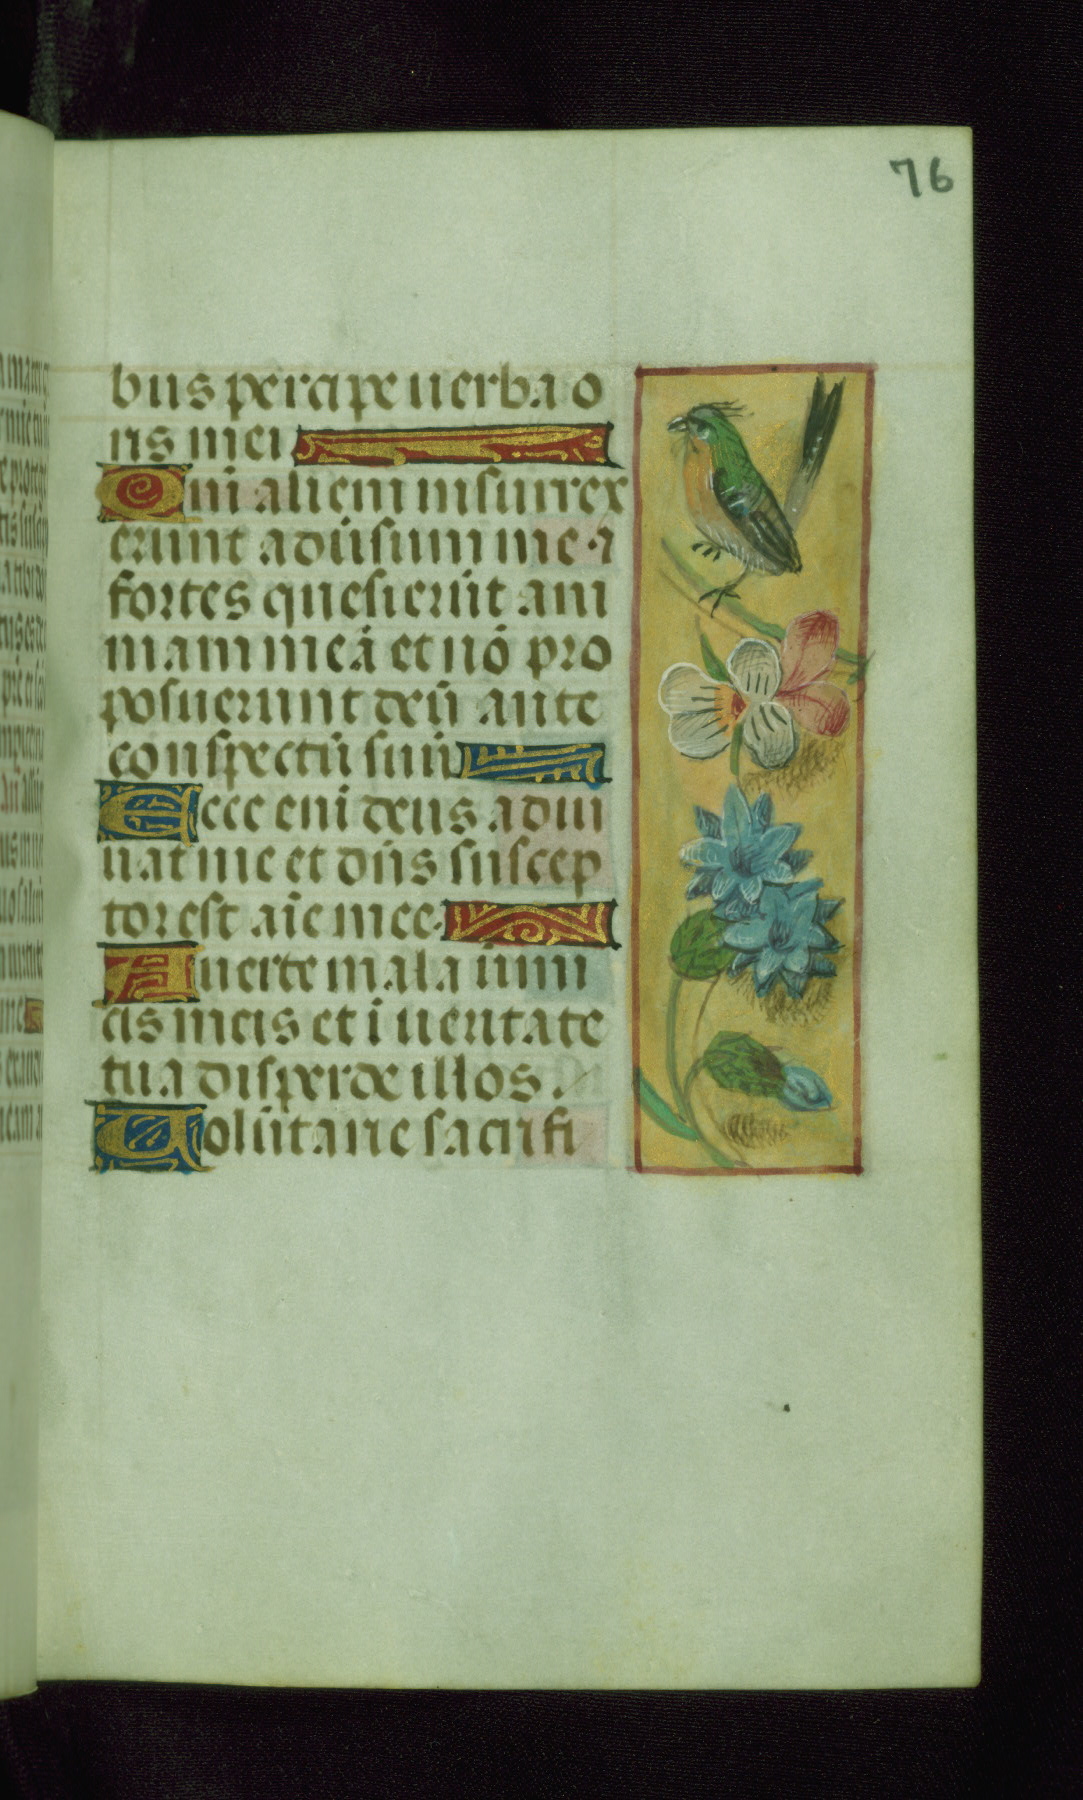 76
bus percipe uerba o
ris mei
Qui alieni insurrex
erunt adūsum me · ⁊
fortes quesierūt ani
mam meā et nō pro
posuerunt deū ante
conspectū suū
Ecce eni deus adiu
uat me et dn̄s suscep
tor est aīe mee·
Auerte mala inimi
cis meis et ī ueritate
tua disperde illos.
Uolūtarie sacrifi